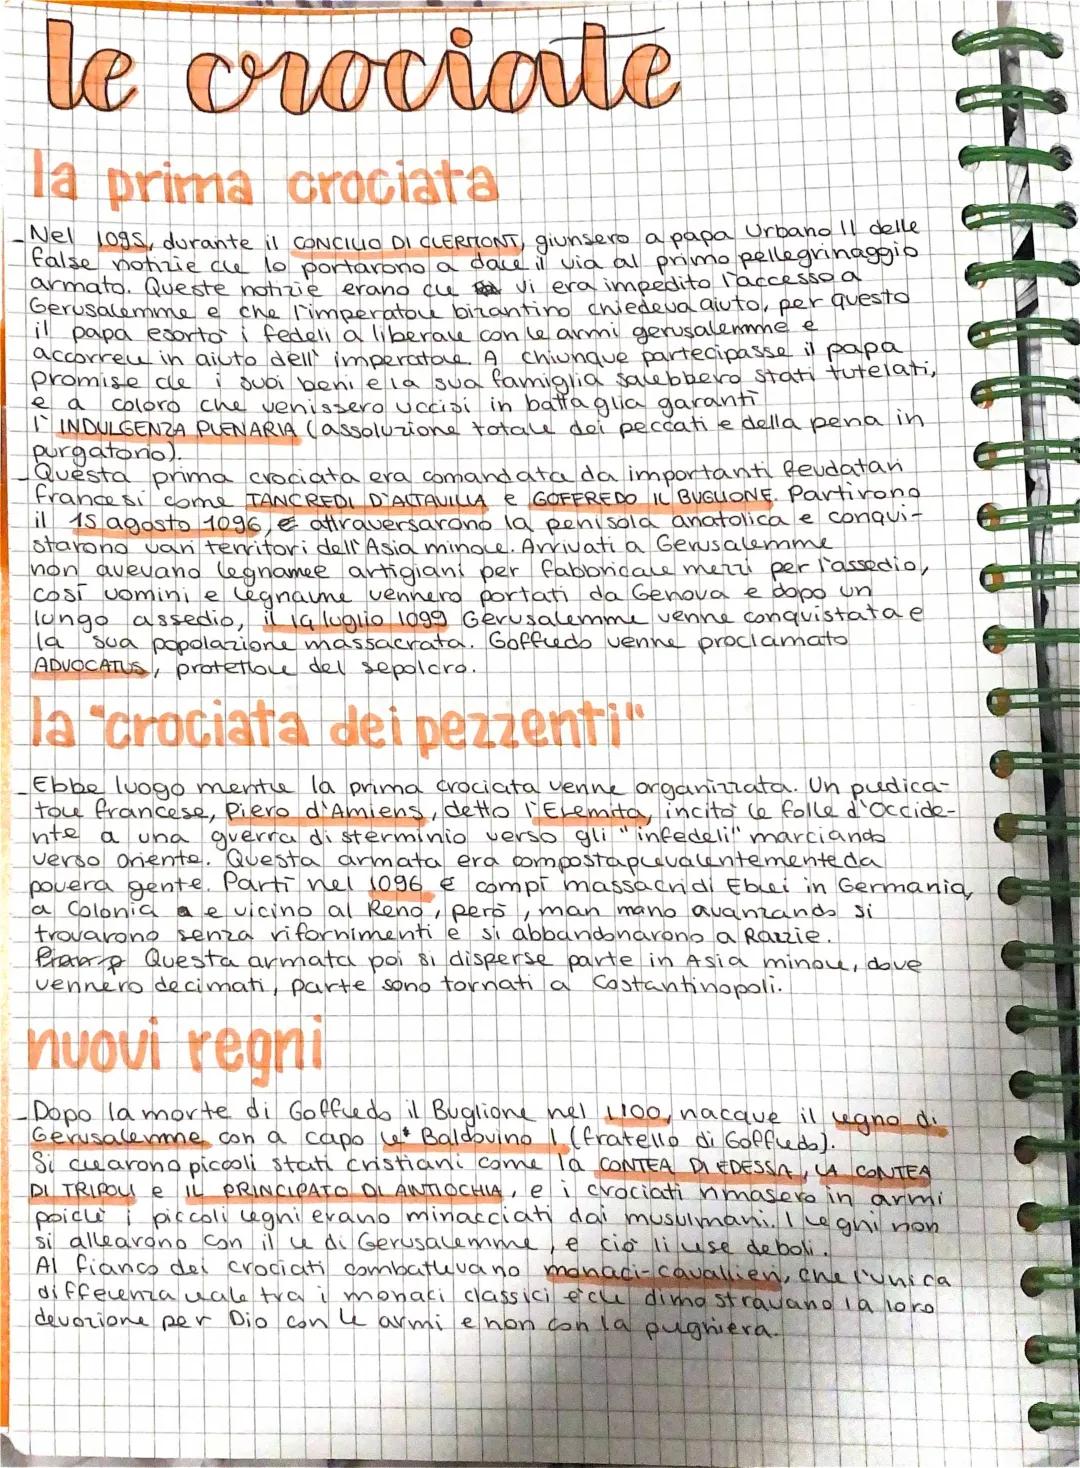 le crociate
la prima crociata
- Nel 1095, durante il CONCILIO DI CLERMONT, giunsero a papa Urbano II delle
false notizie che lo portarono a dare il via al primo pellegrinaggio
armato. Queste notizie erano che vi era impedito l'accesso a
Gerusalemme e che l'imperatore bizantino chiedeva aiuto, per questo
il papa esortò i fedeli a liberare con le armi gerusalemme e
accorrere in aiuto dell' imperatore. A chiunque partecipasse il papa
promise che i suoi beni e la sua famiglia sarebbero stati tutelati,
e a coloro che venissero uccisi in battaglia garantì
l' INDULGENZA PLENARIA (assoluzione totale dei peccati e della pena in
purgatorio).
- Questa prima crociata era comandata da importanti feudatari
francesi come TANCREDI D'ALTAVILLA e GOFFREDO IL BUGLIONE. Partirono
il 15 agosto 1096, e attraversarono la penisola anatolica e conqui-
starono vari territori dell'Asia minore. Arrivati a Gerusalemme
non avevano legname e artigiani per fabbricare mezzi per l'assedio,
così uomini e legname vennero portati da Genova e dopo un
lungo assedio, il 14 luglio 1099 Gerusalemme venne conquistata e
la sua popolazione massacrata. Goffredo venne proclamato
ADVOCATUS, protettore del sepolcro.
la "crociata dei pezzenti"
- Ebbe luogo mentre la prima crociata venne organizzata. Un predica-
tore francese, Piero d'Amiens, detto l'Eremita, incitò le folle d'Occide-
nte a una guerra di sterminio verso gli "infedeli" marciando
verso oriente. Questa armata era composta prevalentemente da
povera gente. Partì nel 1096 e compì massacri di Ebrei in Germania,
a Colonia e vicino al Reno, però, man mano avanzando si
trovarono senza rifornimenti e si abbandonarono a Razzie.
Questa armata poi si disperse parte in Asia minore, dove
vennero decimati, parte sono tornati a Costantinopoli.
nuovi regni
- Dopo la morte di Goffredo il Buglione nel 1100, nacque il regno di
Gerusalemme con a capo re Baldovino I (fratello di Goffredo).
Si crearono piccoli stati cristiani come la CONTEA DI EDESSA, LA CONTEA
DI TRIPOLI e IL PRINCIPATO DI ANTIOCHIA, e i crociati rimasero in armi
poichè i piccoli regni erano minacciati dai musulmani. I regni non
si allearono con il re di Gerusalemme, e ciò li rese deboli.
Al fianco dei crociati combattevano monaci-cavalieri, che l'unica
differenza reale tra i monaci classici è che dimostravano la loro
devozione per Dio con le armi e non con la pughiera.